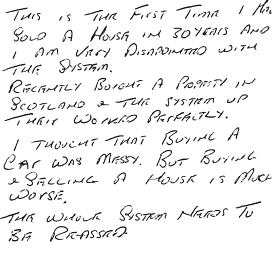 THIS IS THE FIRST TIME I HAD
SOLD A HOUSE IN 30 YEARS AND
I AM VREY DISAPOINTED WITH
THE SYSTEM.
RECENTLY BOUGHT A PROPETY IN
SCOTLAND & THE SYSTEM UP
THEIR WORKED PERFECTLY.
I THOUGHT THAT BUYING A
CAR WAS MESSY. BUT BUYING
& SELLING A HOUSE IS MUCH
WORSE.
THE WHOLE SYSTEM NEEDS TO
BE REASSED